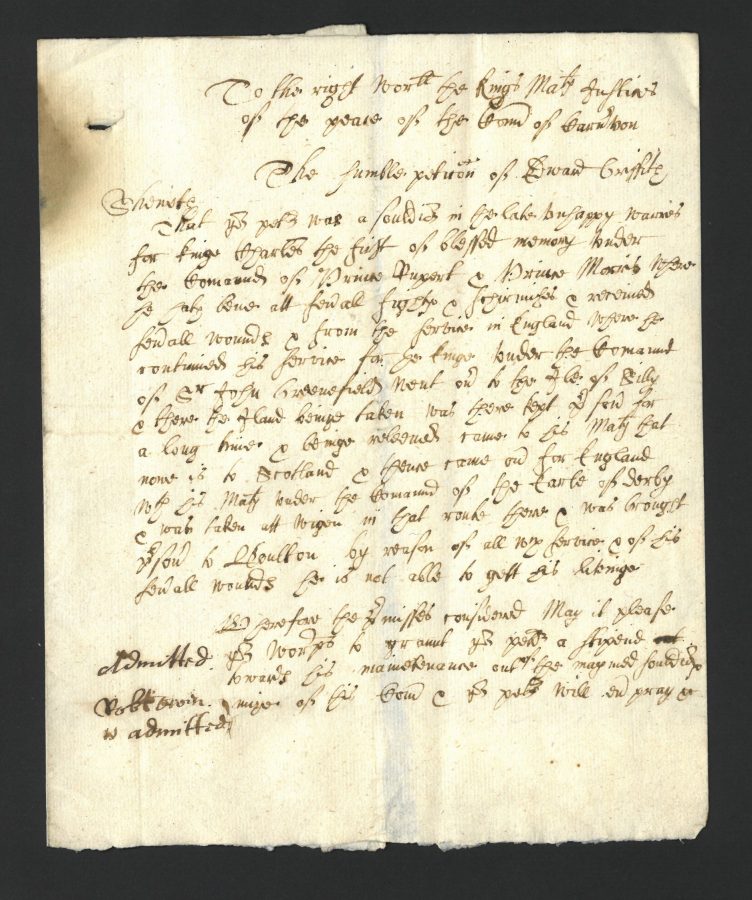 To the right worll the kings Maty Justices
of the peace of the Com̄ of Carn̄von
The humble peticon of Edward Griffith
Sheweth
That yr petr was a souldier in the late unhappy warres
for kinge Charles the first of blessed memory under
the Comaund of Prince Rupert & Prince Morris where
he hath bene att sevall fights & schirmiches & received
sevall wounds & from the service in England where he
continued his service for the kinge under the Comaund
of Sr John Greenefield went ov to the Ile of Silly
& there the Iland beinge taken was there kept prson for
a long time & beinge released came to his Maty that
nowe is to Scotland & thence came ov for England
wth his Maty under the Comaund of the Earle of derby
& was taken att wigon in that route there & was brought
prson to by reason of all wch service & of his
sevall wounds he is not able to gett his liveinge
Wherefore the prmisses considered May it please
yr worps to graunt yr petr a stipend
towards his maintenance out of the maymed souldiers
Admitted
monye of his Com̄ & yr petr will ev pray &c
admitted